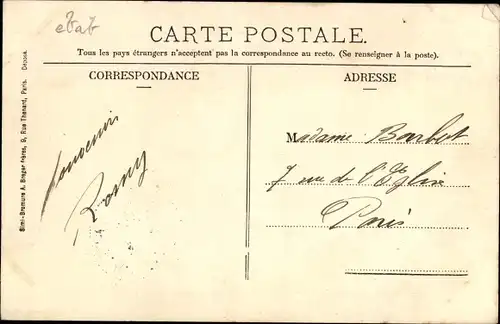 état
CARTE POSTALE.
Tous les pays étrangers n'acceptent pas la correspondance au recto. (Se renseigner à la poste).
CORRESPONDANCE
ADRESSE
Souvenir
Romy
Madame Barbot
7 rue de l'Eglise
Paris
Simi-Bromure A. Breger frères, 9, Rue Thénard, Paris. Déposé.